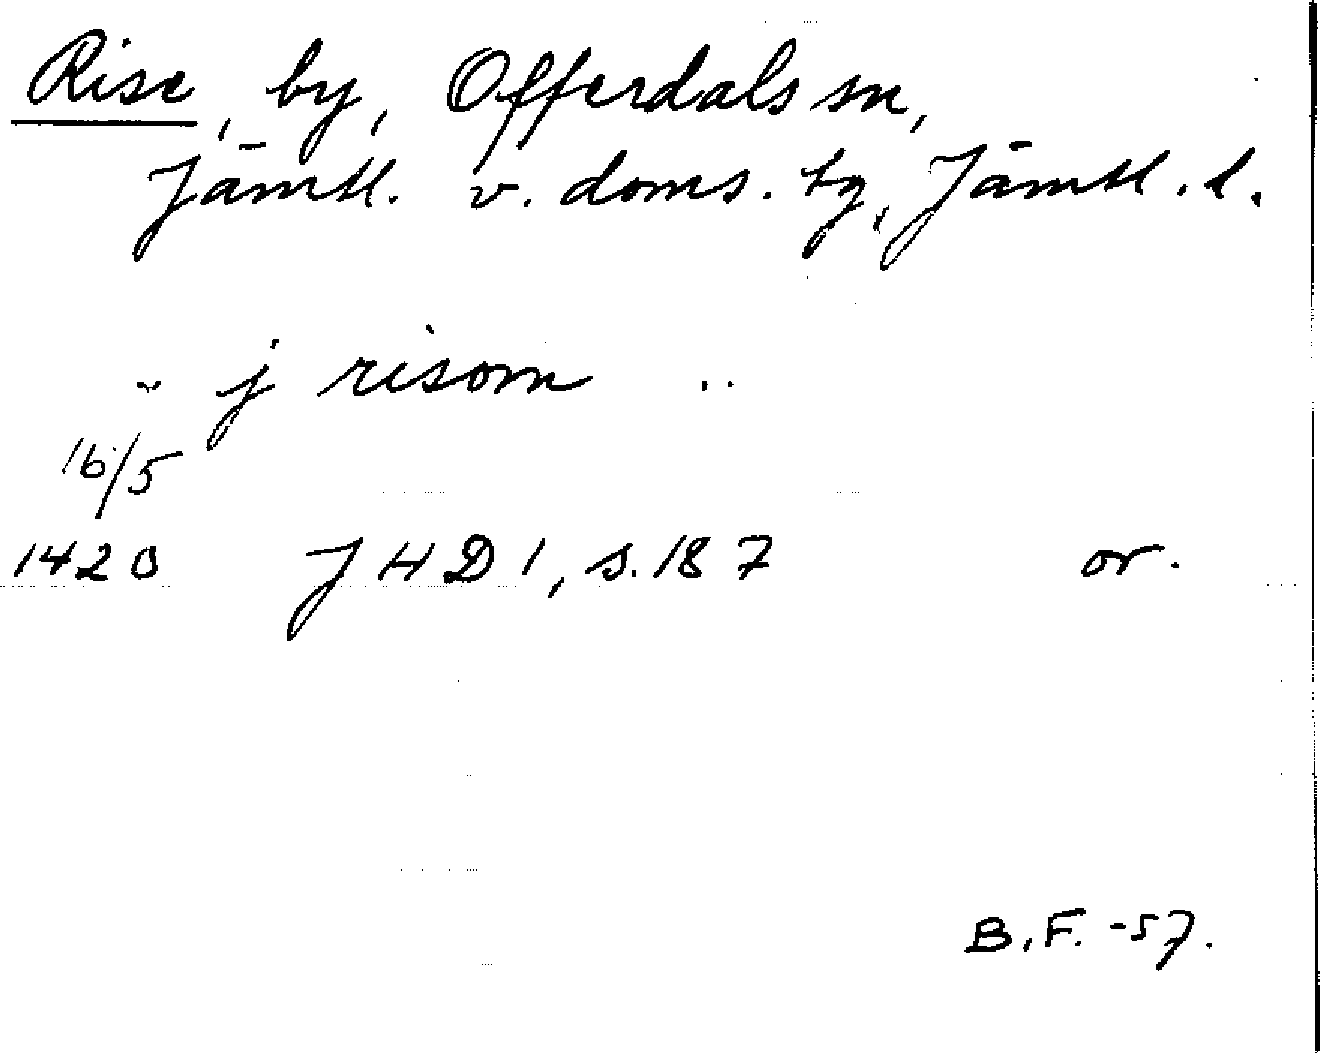 Rise, by, Offerdals sn,
Jämtl. v. doms. tg, Jämtl. l.
.. j risom ..
16/5
1420 JHD 1, s. 187 or.
B.F. -57.